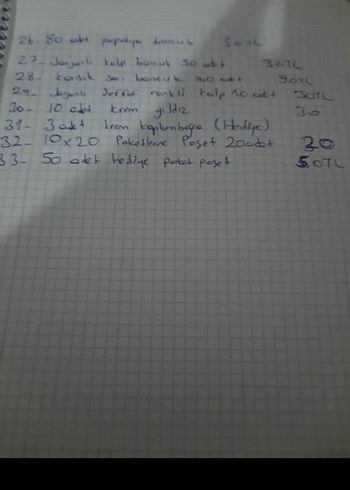 26- 80 adet papatya boncuk 50TL
27- Janjanlı kalp boncuk 50 adet 30TL
28- Karışık sarı boncuk 40 adet 90TL
29- Janjanlı Şeffaf renkli kalp 10 adet 30TL
30- 10 adet krem yıldız 30
31- 3 adet krem kaplumbağa (Hediye)
32- 10x20 Paketleme Poşet 20 adet 30
33- 50 adet hediye paket poşet 50TL